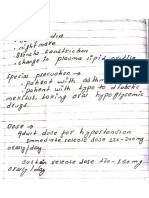 . nightmare
. Broncho-constriction
. change in plasma lipid profile
Special precaution →
. patient with asthma
. patient with type 10 diabetes
mellitus, taking oral hypoglycemic
drugs.
Dose →
Adult dose for hypertension
immediate release dose 120-240mg
orally/day
release dose 120-160mg
orally/day